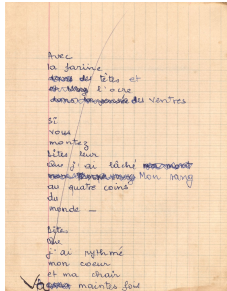 Avec
la farine
des têtes et
l'ocre
des ventres
Si
vous
montez
Dites leur
Que j'ai lâché
Mon sang
au quatre coins
du
monde —
Dites
Que
j'ai rythmé
mon coeur
et ma chair
maintes fois